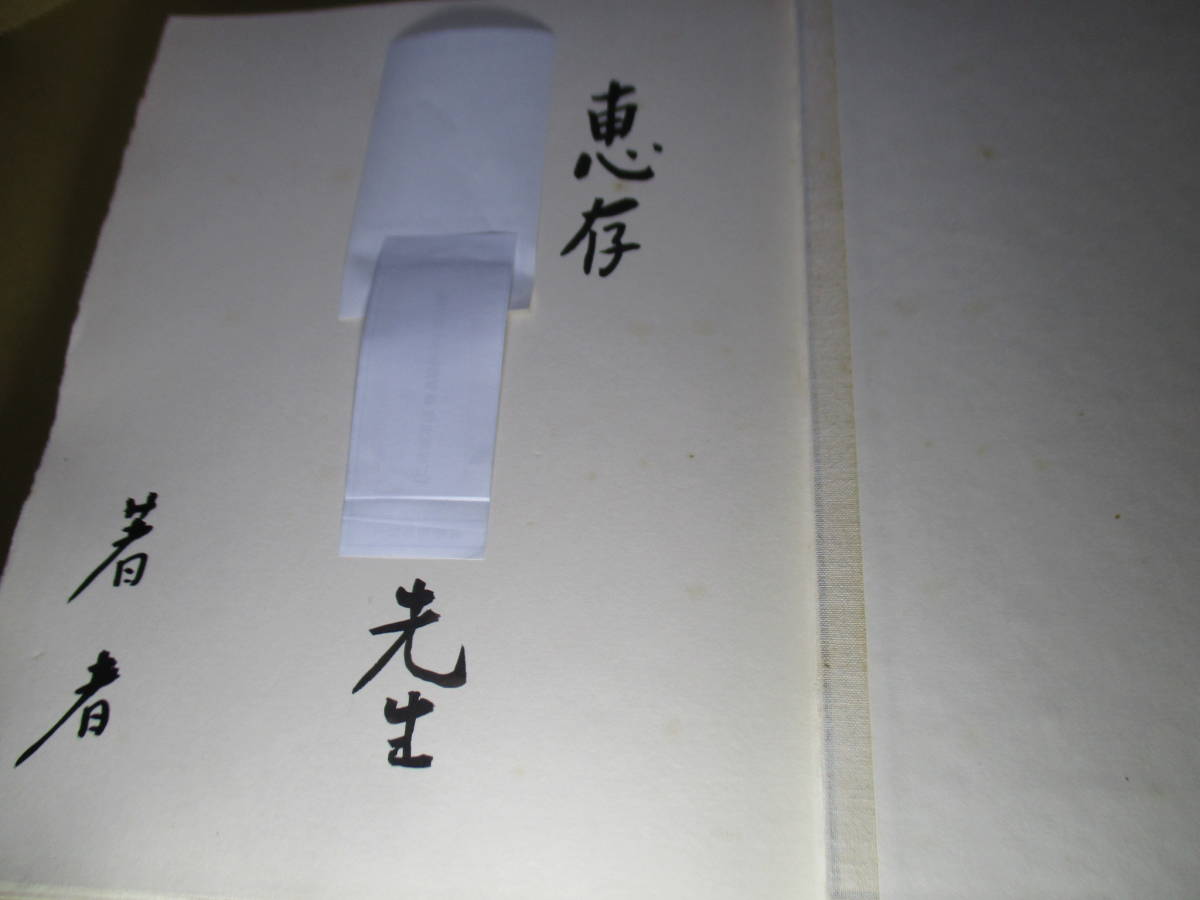 恵存
先生
著者